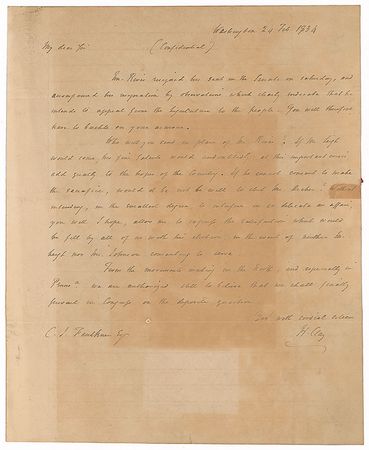 Washington 24 Feb. 1834
My dear Sir (Confidential)
Mr. Rives resigned his seat in the Senate on saturday, and
accompanied his resignation by observations which clearly indicate that he
intends to appeal from the Legislature to the people. You will therefore
have to buckle on your armour.
Who will you send in place of Mr. Rives? If Mr. Leigh
would come, his fine talents would undoubtedly, at this important crisis
add greatly to the hopes of the Country. If he cannot consent to make
the sacrifice, would it be not be well to elect Mr. Archer? Without
intending, in the smallest degree, to interfere in so delicate an affair,
you will I hope, allow me to express the satisfaction which would
be felt by all of us with his election, in the event of neither Mr.
Leigh nor Mr. Johnson consenting to serve.
From the movements making in the North, and especially in
Penna. we are authorized still to believe that we shall finally
prevail in Congress on the deposite question.
I am with cordial esteem
C. J. Faulkner Esq. H. Clay